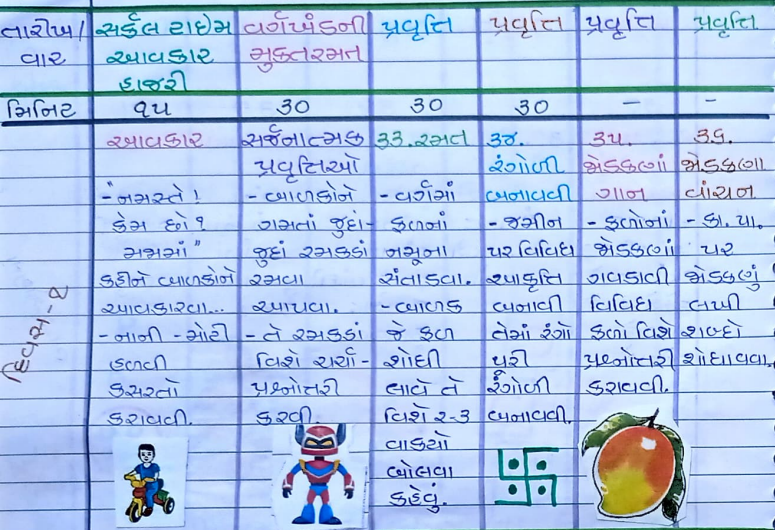 તારીખ/ વાર
સર્કલ ટાઈમ આવકાર હાજરી
વર્ગખંડની મુક્તરમત
પ્રવૃત્તિ
પ્રવૃત્તિ
પ્રવૃત્તિ
પ્રવૃત્તિ
મિનિટ ૧૫ ૩૦ ૩૦ ૩૦ – –
દિવસ-૧
આવકાર
- "નમસ્તે!
કેમ છો?
મજામાં"
કહીને બાળકોને
આવકારવા...
- નાની - મોટી
હળવી
કસરતો
કરાવવી.
સર્જનાત્મક
પ્રવૃત્તિઓ
- બાળકોને
ગમતાં જુદાં-
જુદાં રમકડાં
રમવા
આપવા.
- તે રમકડાં
વિશે ચર્ચા-
પ્રશ્નોત્તરી
કરવી.
૩૩. રમત
- વર્ગમાં
ફળનાં
નમૂના
સંતાડવા.
- બાળક
જે ફળ
શોધી
લાવે તે
વિશે ૨-૩
વાક્યો
બોલવા
કહેવું.
૩૪.
રંગોળી
બનાવવી
- જમીન
પર વિવિધ
આકૃતિ
બનાવી
તેમાં રંગો
પૂરી
રંગોળી
બનાવવી.
૩૫.
જોડકણાં
ગાન
- ફળોનાં
જોડકણાં
ગવડાવી
વિવિધ
ફળો વિશે
પ્રશ્નોત્તરી
કરાવવી.
૩૬.
જોડકણા
વાંચન
- કા. પા.
પર
જોડકણું
લખી
શબ્દો
શોધાવવા.